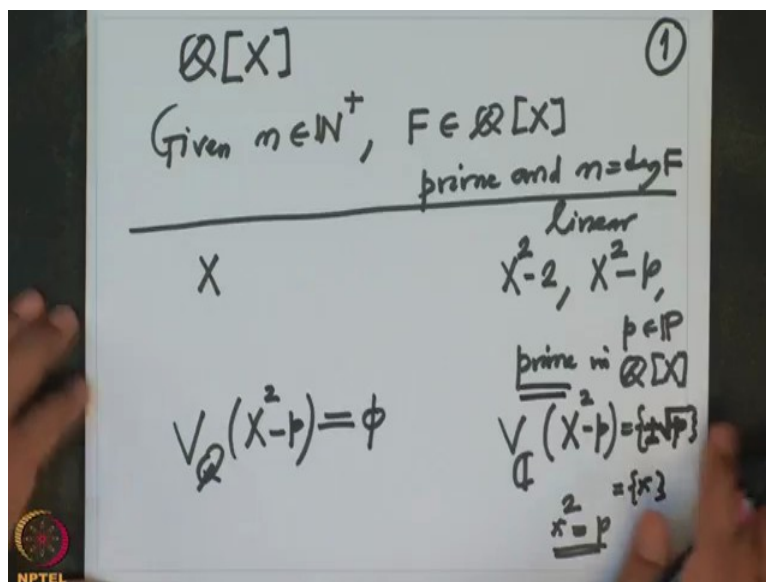 ℚ[X]
①
Given n ∈ ℕ⁺, F ∈ ℚ[X]
prime and n = deg F
linear
X
X² - 2, X² - p,
p ∈ ℙ
prime in ℚ[X]
V_ℚ(X² - p) = ϕ
V_ℂ(X² - p) = {±√p}
= {x}
x² = p
NPTEL